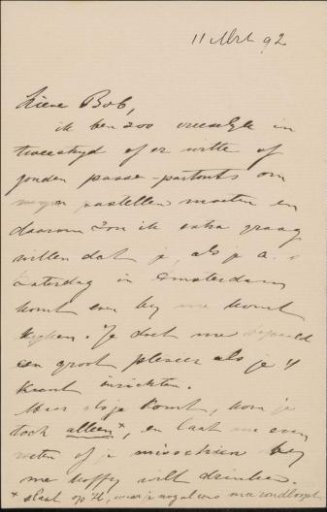 11 Mrt 92
Lieve Bob,
ik ben zoo vreeselijk in
tweestrijd of er witte of
gouden passe-partouts om
mijn pastellen moeten en
daarom zou ik extra graag
willen dat je, als je a.s
Zaterdag in Amsterdam
komt even bij me komt
kijken. Je doet me bepaald
een groot plezier als je 't
kunt inrichten.
Maar als je komt, kom je
toch alleen*, en laat me even
weten of je misschien bij
me koffy wilt drinken.
* slaat op 'U, waar je nogal eens mee rondloopt